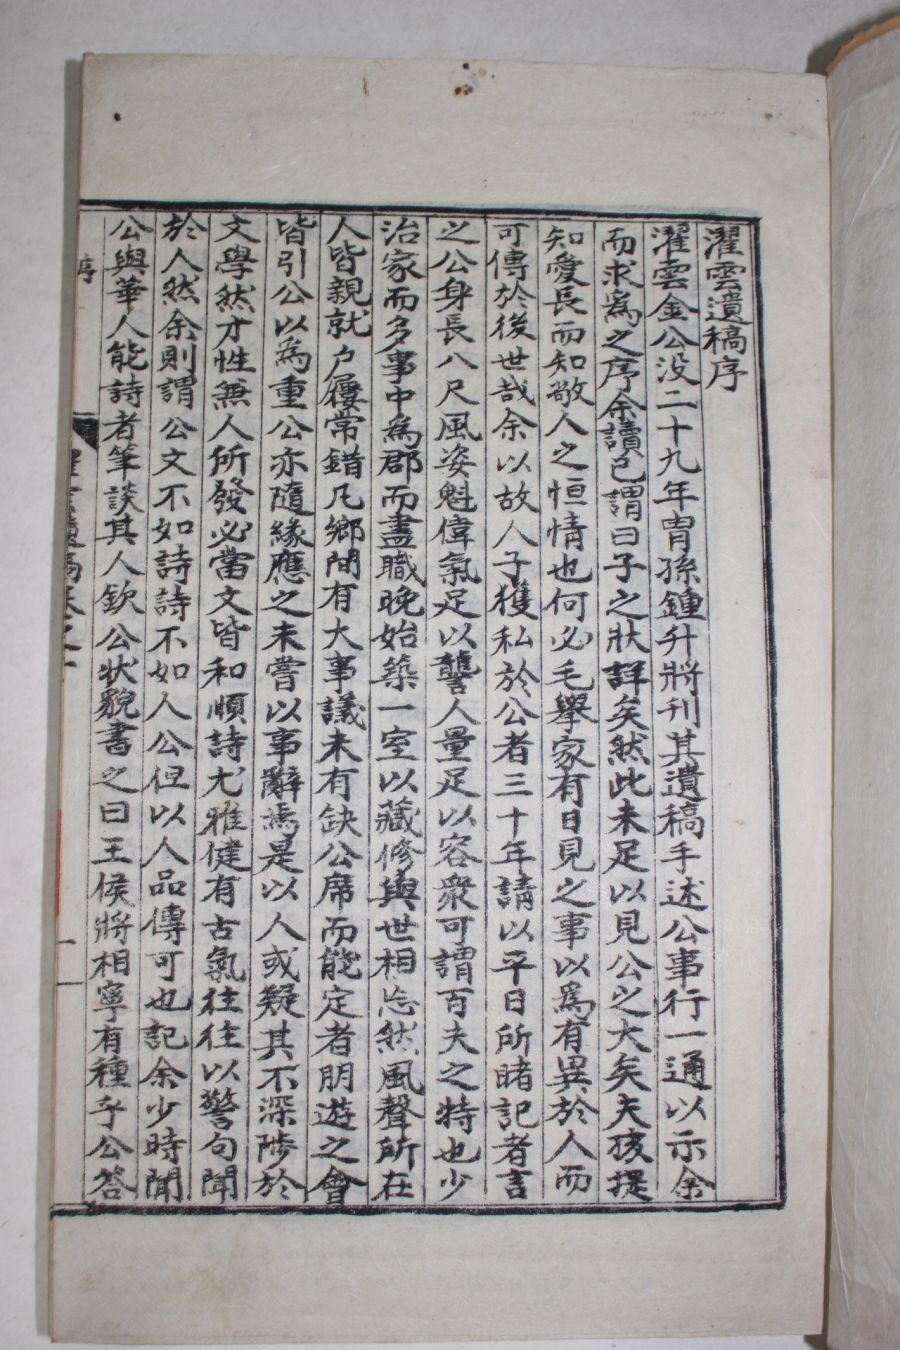 濯雲遺稿序
濯雲金公没二十九年胄孫鍾升將刊其遺稿手述公事行一通以示余
而求爲之序余讀已謂曰子之狀詳矣然此未足以見公之大矣夫孩提
知愛長而知敬人之恒情也何必毛擧家有日見之事以爲有異於人而
可傳於後世哉余以故人子獲私於公者三十年請以平日所睹記者言
之公身長八尺風姿魁偉氣足以讋人量足以容衆可謂百夫之特也少
治家而多事中爲郡而盡職晚始築一室以藏修與世相忘然風聲所在
人皆親就戶屨常錯凡鄉間有大事議未有缺公席而能定者朋遊之會
皆引公以為重公亦隨緣應之未嘗以事辭焉是以人或疑其不深陟於
文學然才性兼人所發必當文皆和順詩尤雅健有古氣往往以警句聞
於人然余則謂公文不如詩詩不如人公但以人品傳可也記余少時聞
公與華人能詩者筆談其人欽公狀貌書之曰王侯將相寧有種乎公答
序
濯雲遺稿卷之一
一